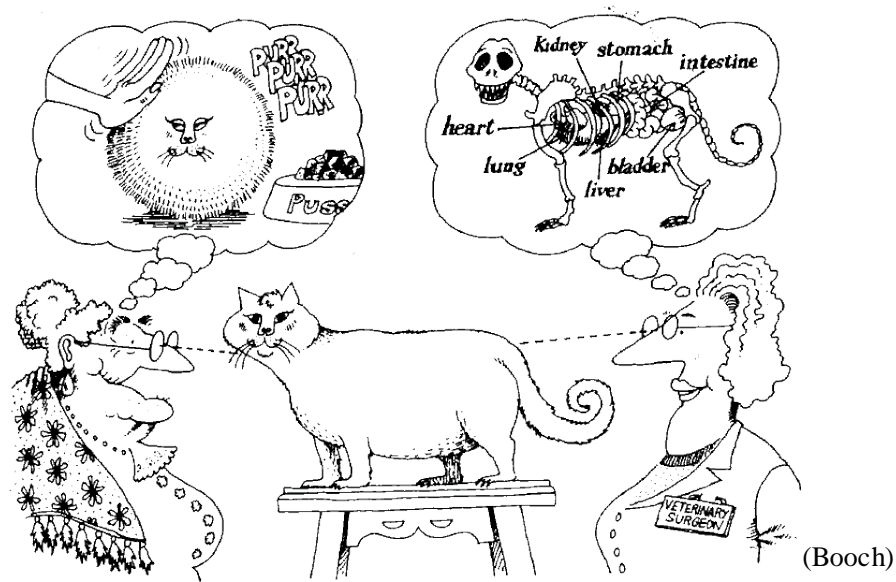 PURR
PURR
PURR
PUSS
Kidney
stomach
intestine
heart
lung
bladder
liver
VETERINARY
SURGEON
(Booch)